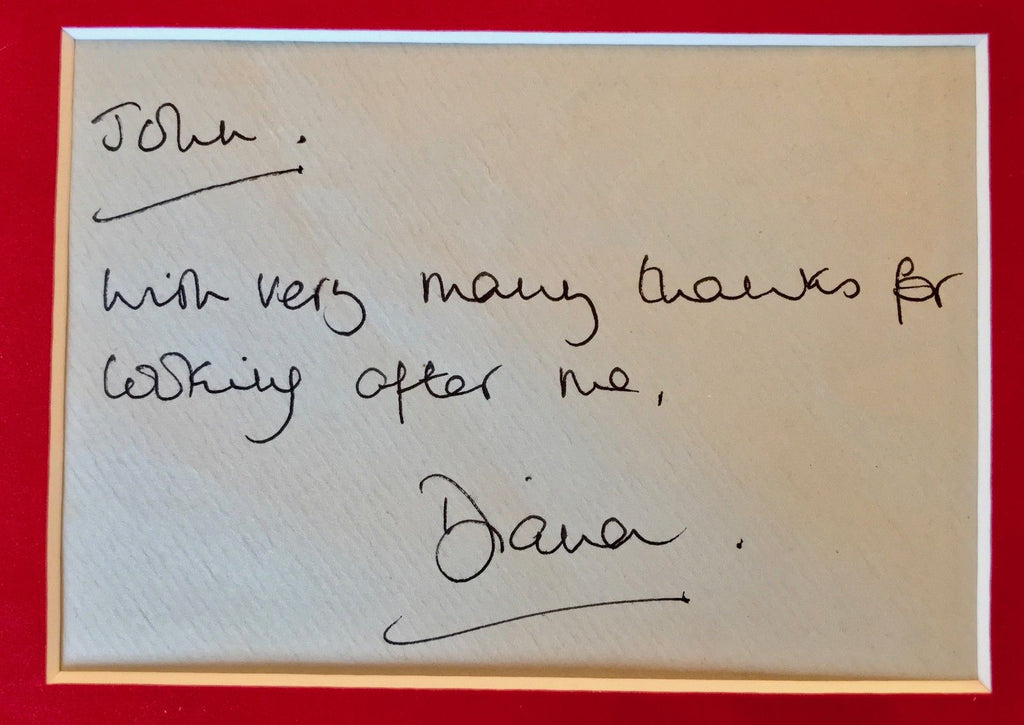 John.
With very many thanks for
looking after me,
Diana.